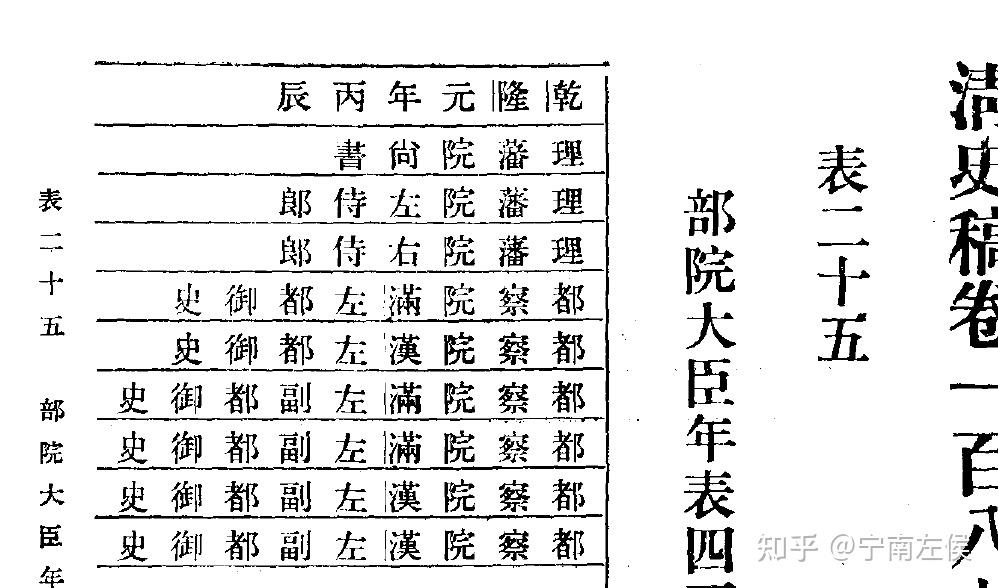 清史稿卷一百八
表二十五
部院大臣年表四
乾隆元年丙辰
理藩院尙書
理藩院左侍郎
理藩院右侍郎
都察院滿左都御史
都察院漢左都御史
都察院滿左副都御史
都察院滿左副都御史
都察院漢左副都御史
都察院漢左副都御史
表二十五 部院大臣年
知乎 @宁南左侯